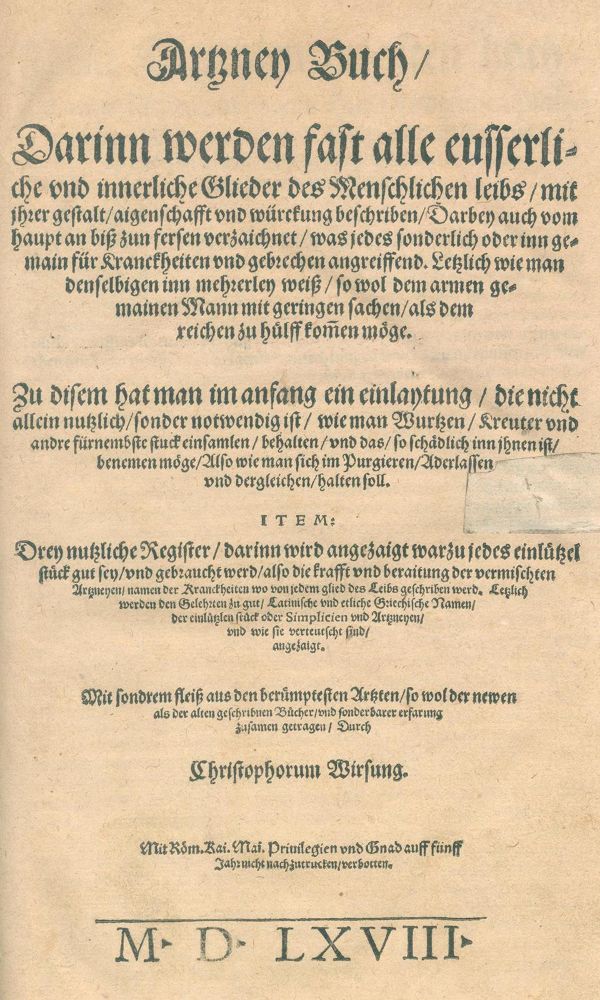 Artzney Buch/
Darinn werden fast alle eusserli-
che vnd innerliche Glieder des Menschlichen leibs/ mit
jhrer gestalt/ aigenschafft vnd würckung beschriben/ Darbey auch vom
haupt an biß zun fersen verzaichnet/ was jedes sonderlich oder inn ge-
main für Kranckheiten vnd gebrechen angreiffend. Letzlich wie man
denselbigen inn mehrerley weiß/ so wol dem armen ge-
mainen Mann mit geringen sachen/ als dem
reichen zu hülff kom̄en möge.
Zu disem hat man im anfang ein einlaytung/ die nicht
allein nutzlich/ sonder notwendig ist/ wie man Wurtzen/ Kreuter vnd
andre fürnembste stuck einsamlen/ behalten/ vnd das/ so schädlich inn jhnen ist/
benemen möge/ Also wie man sich im Purgieren/ Aderlassen
vnd dergleichen/ halten soll.
ITEM:
Drey nutzliche Register/ darinn wird angezaigt warzu jedes einlützel
stück gut sey/ vnd gebraucht werd/ also die krafft vnd beraitung der vermischten
Artzneyen/ namen der Kranckheiten wo von jedem glied des Leibs geschriben werd. Letzlich
werden den Gelehrten zu gut/ Latinische vnd etliche Griechische Namen/
der einlützlen stück oder Simplicien vnd Artzneyen/
vnd wie sie verteutscht sind/
angezaigt.
Mit sondrem fleiß aus den berümptesten Artzten/ so wol der newen
als der alten geschribnen Bücher/ vnd sonderbarer erfarung
zusamen getragen/ Durch
Christophorum Wirsung.
Mit Röm. Kai. Mai. Priuilegien vnd Gnad auff fünff
Jahr nicht nachzutrucken/ verbotten.
M. D. LXVIII.